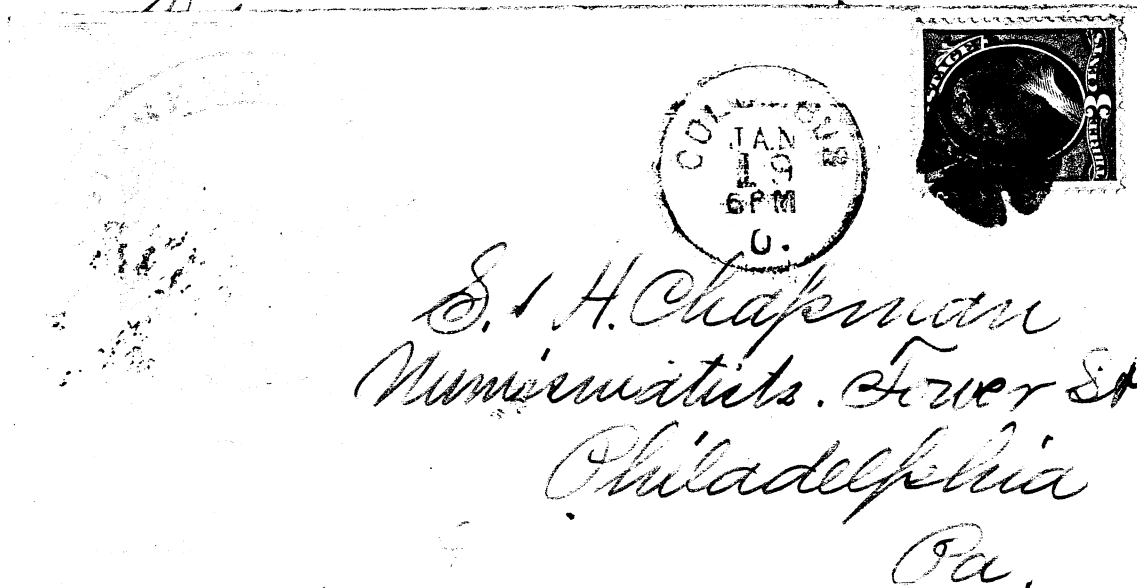 COLUMBUS
JAN
19
6PM
O.
S. & H. Chapman
Numismatists. Tower St
Philadelphia
Pa.